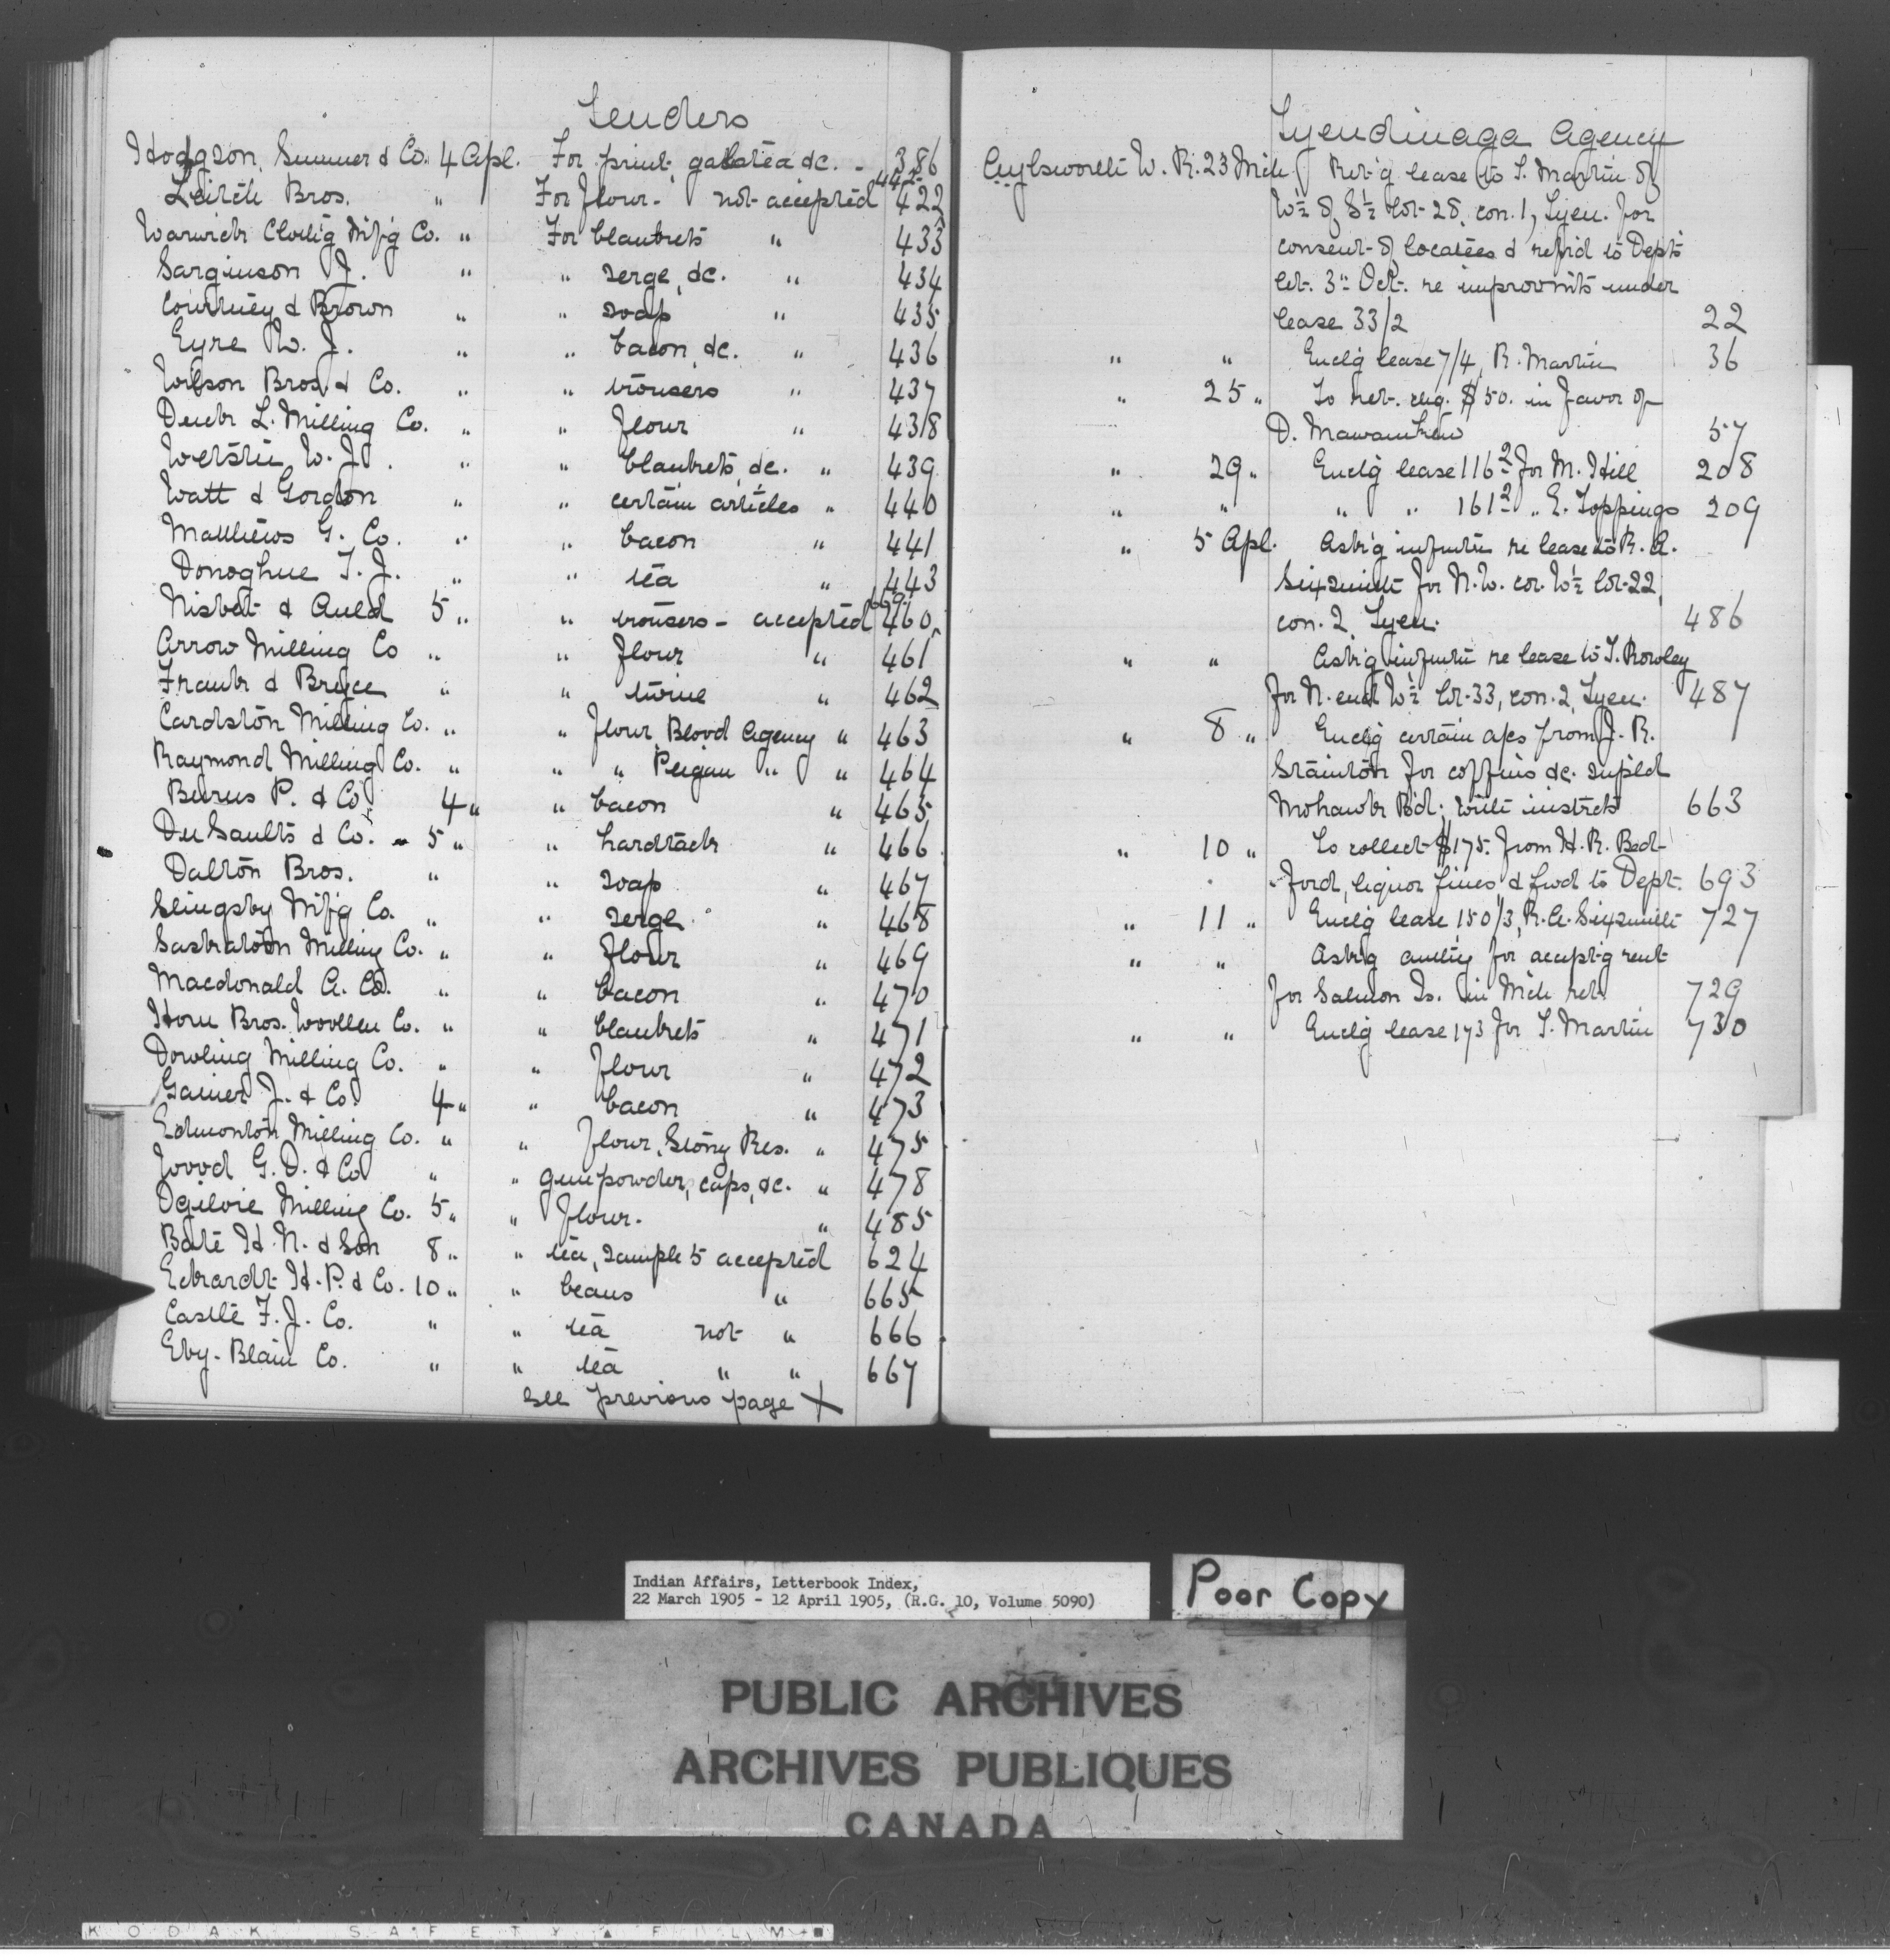 Tenders
Hodgson, Sumner & Co. 4 Apl. For print, galatea &c. - 386
442
Leitch Bros. " For flour - not accepted 422
Warwick Clothg Mfg Co. " For blankets " 433
Sarginson J. " " serge, &c. " 434
Courtney & Brown " " soap " 435
Eyre W. J. " " bacon, &c. " 436
Wilson Bros & Co. " " trousers " 437
Denk L. Milling Co. " " flour " 438
W. J. " " blankets, &c. " 439
Watt & Gordon " " certain articles " 440
Matthews G. Co. " " bacon " 441
Donoghue T. J. " " tea " 443
669
Nisbet & Auld 5 " " trousers - accepted 460
Arrow Milling Co " " flour " 461
Frank & Bryce " " twine " 462
Cardston Milling Co. " " flour Blood Agency " 463
Raymond Milling Co. " " " Peigan " " 464
Burns P. & Co. 4 " " bacon " 465
Du Saults & Co. - 5 " " hardtack " 466
Dalton Bros. " " soap " 467
Slingsby Mfg Co. " " serge " 468
Saskatoon Milling Co. " " flour " 469
Macdonald A. Co. " " bacon " 470
Horn Bros. Woollen Co. " " blankets " 471
Dowling Milling Co. " " flour " 472
Gainer J. & Co. 4 " " bacon " 473
Edmonton Milling Co. " " flour, Stony Res. " 475
Wood G. D. & Co " " gunpowder, caps, &c. " 478
Ogilvie Milling Co. 5 " " flour. " 485
Bate H. N. & Son 8 " " tea, sample 5 accepted 624
Eckardt H. P. & Co. 10 " " beans " 665
Castle F. J. Co. " " tea not " 666
Eby-Blain Co. " " tea " " 667
See previous page X
Tyendinaga Agency
Aylsworth W. R. 23 Mch Ret'g lease to T. Martin of
W½ of S½ lot 28, con. 1, Tyen. for
consent of locatees & refrd to Dept's
let. 3" Oct. re improvmts under
lease 33/2 22
" " Enclg lease 7/4, R. Martin 36
" 25 " To ret. chq. $50. in favor of
D. 57
" 29 " Enclg lease 116² for M. Hill 208
" " " " 161² " E. Toppings 209
" 5 Apl. Ask'g infmtn re lease to R. A.
Sixsmith for N.W. cor. W½ lot 22,
con. 2, Tyen. 486
" " Ask'g infmtn re lease to T. Rowley
for N. end W½ lot 33, con. 2, Tyen. 487
" 8 " Enclg certain a/cs from J. R.
Stainton for coffins &c. supled
Mohawk Bd; with instrcts 663
" 10 " To collect $175. from H. R. Bed-
-ford, liquor fines & fwd to Dept. 693
" 11 " Enclg lease 150/3, R. A. Sixsmith 727
" " Ask'g authty for accept'g rent
for Salmon Is. in Mch ret. 729
" " Enclg lease 173 for T. Martin 730
Indian Affairs, Letterbook Index,
22 March 1905 - 12 April 1905, (R.G. 10, Volume 5090)
Poor Copy
PUBLIC ARCHIVES
ARCHIVES PUBLIQUES
CANADA
KODAK SAFETY FILM